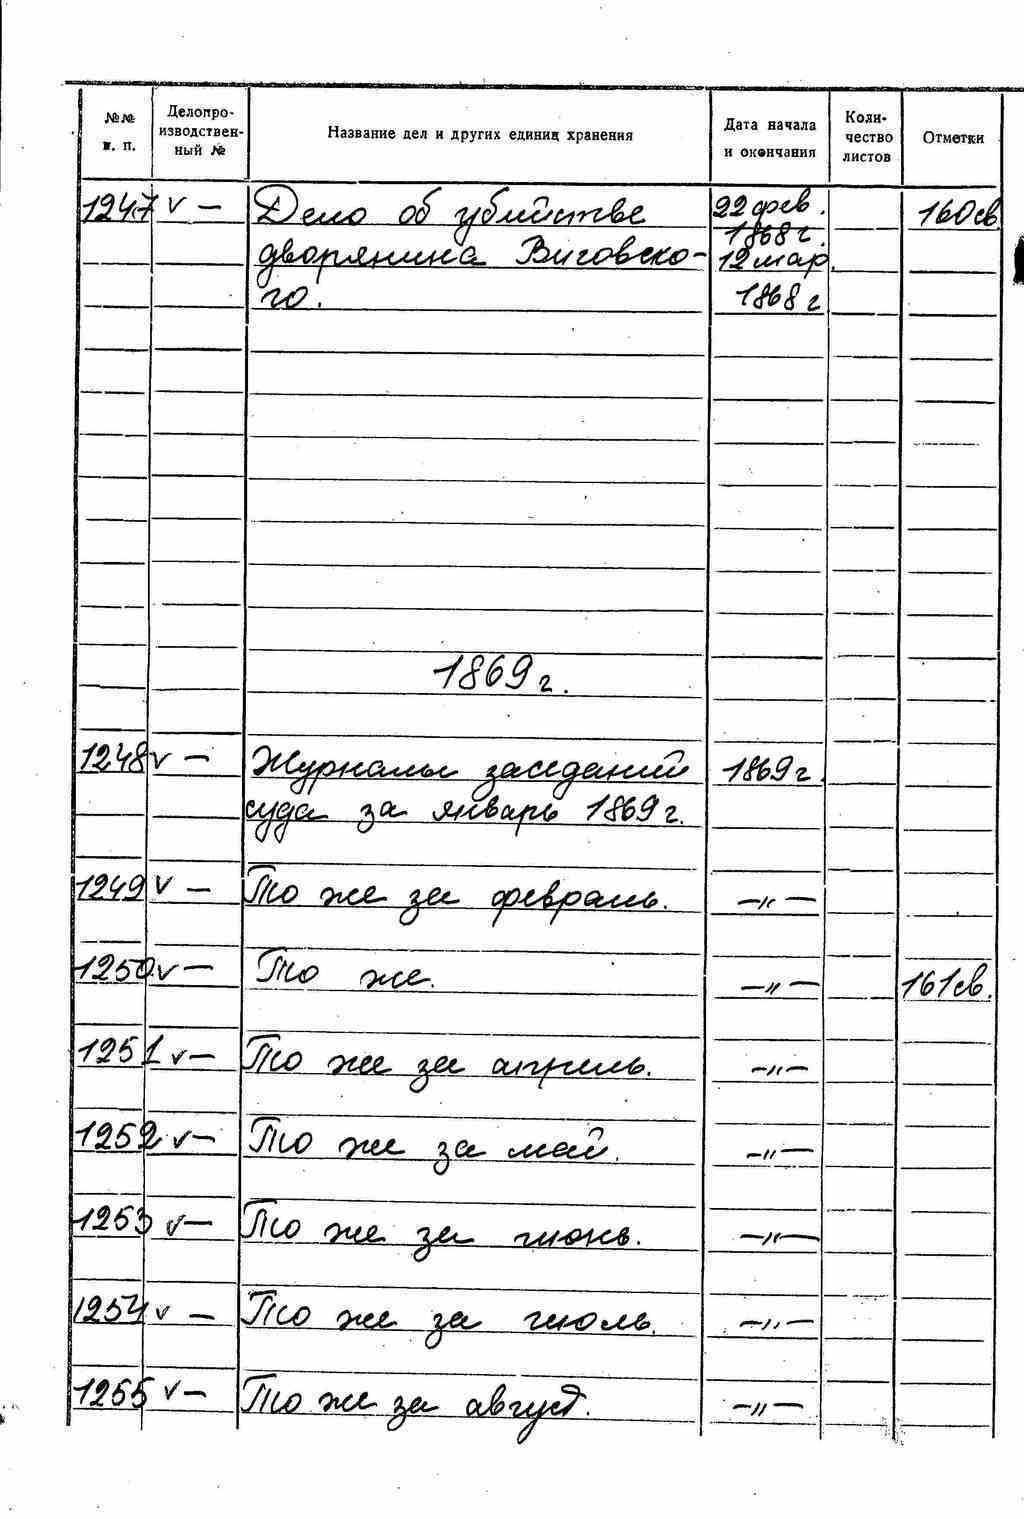 №№ п. п. | Делопро-изводствен-ный № | Название дел и других единиц хранения | Дата начала и окончания | Коли-чество листов | Отметки
1247 v — Дело об убийстве 22 фев. 160св
1868 г.
дворянина Виговско- 12 мар.
го. 1868 г
1869 г.
1248 v — Журналы заседаний 1869 г.
суда за январь 1869 г.
1249 v — То же за февраль. —"—
1250 v — То же. —"— 161св.
1251 v — То же за апрель. —"—
1252 v — То же за май. —"—
1253 v — То же за июнь. —"—
1254 v — То же за июль. —"—
1255 v — То же за август. —"—